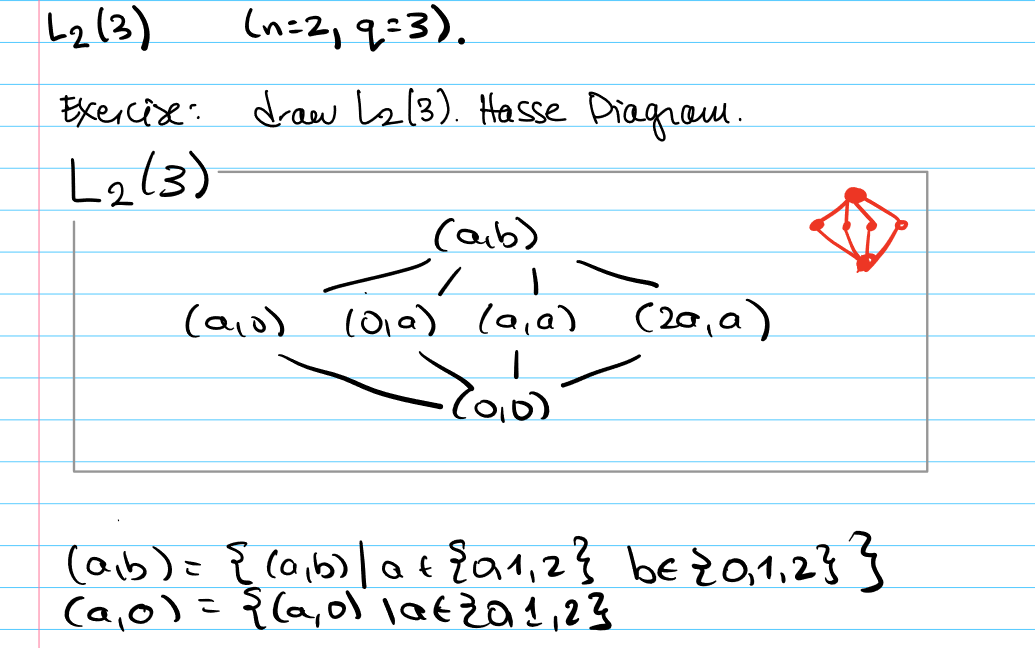 L₂(3) (n=2, q=3).
Exercise: draw L₂(3). Hasse Diagram.
L₂(3)
(a,b)
(a,0) (0,a) (a,a) (2a,a)
(0,0)
(a,b) = {(a,b) | a ∈ {0,1,2} b ∈ {0,1,2}}
(a,0) = {(a,0) | a ∈ {0,1,2}